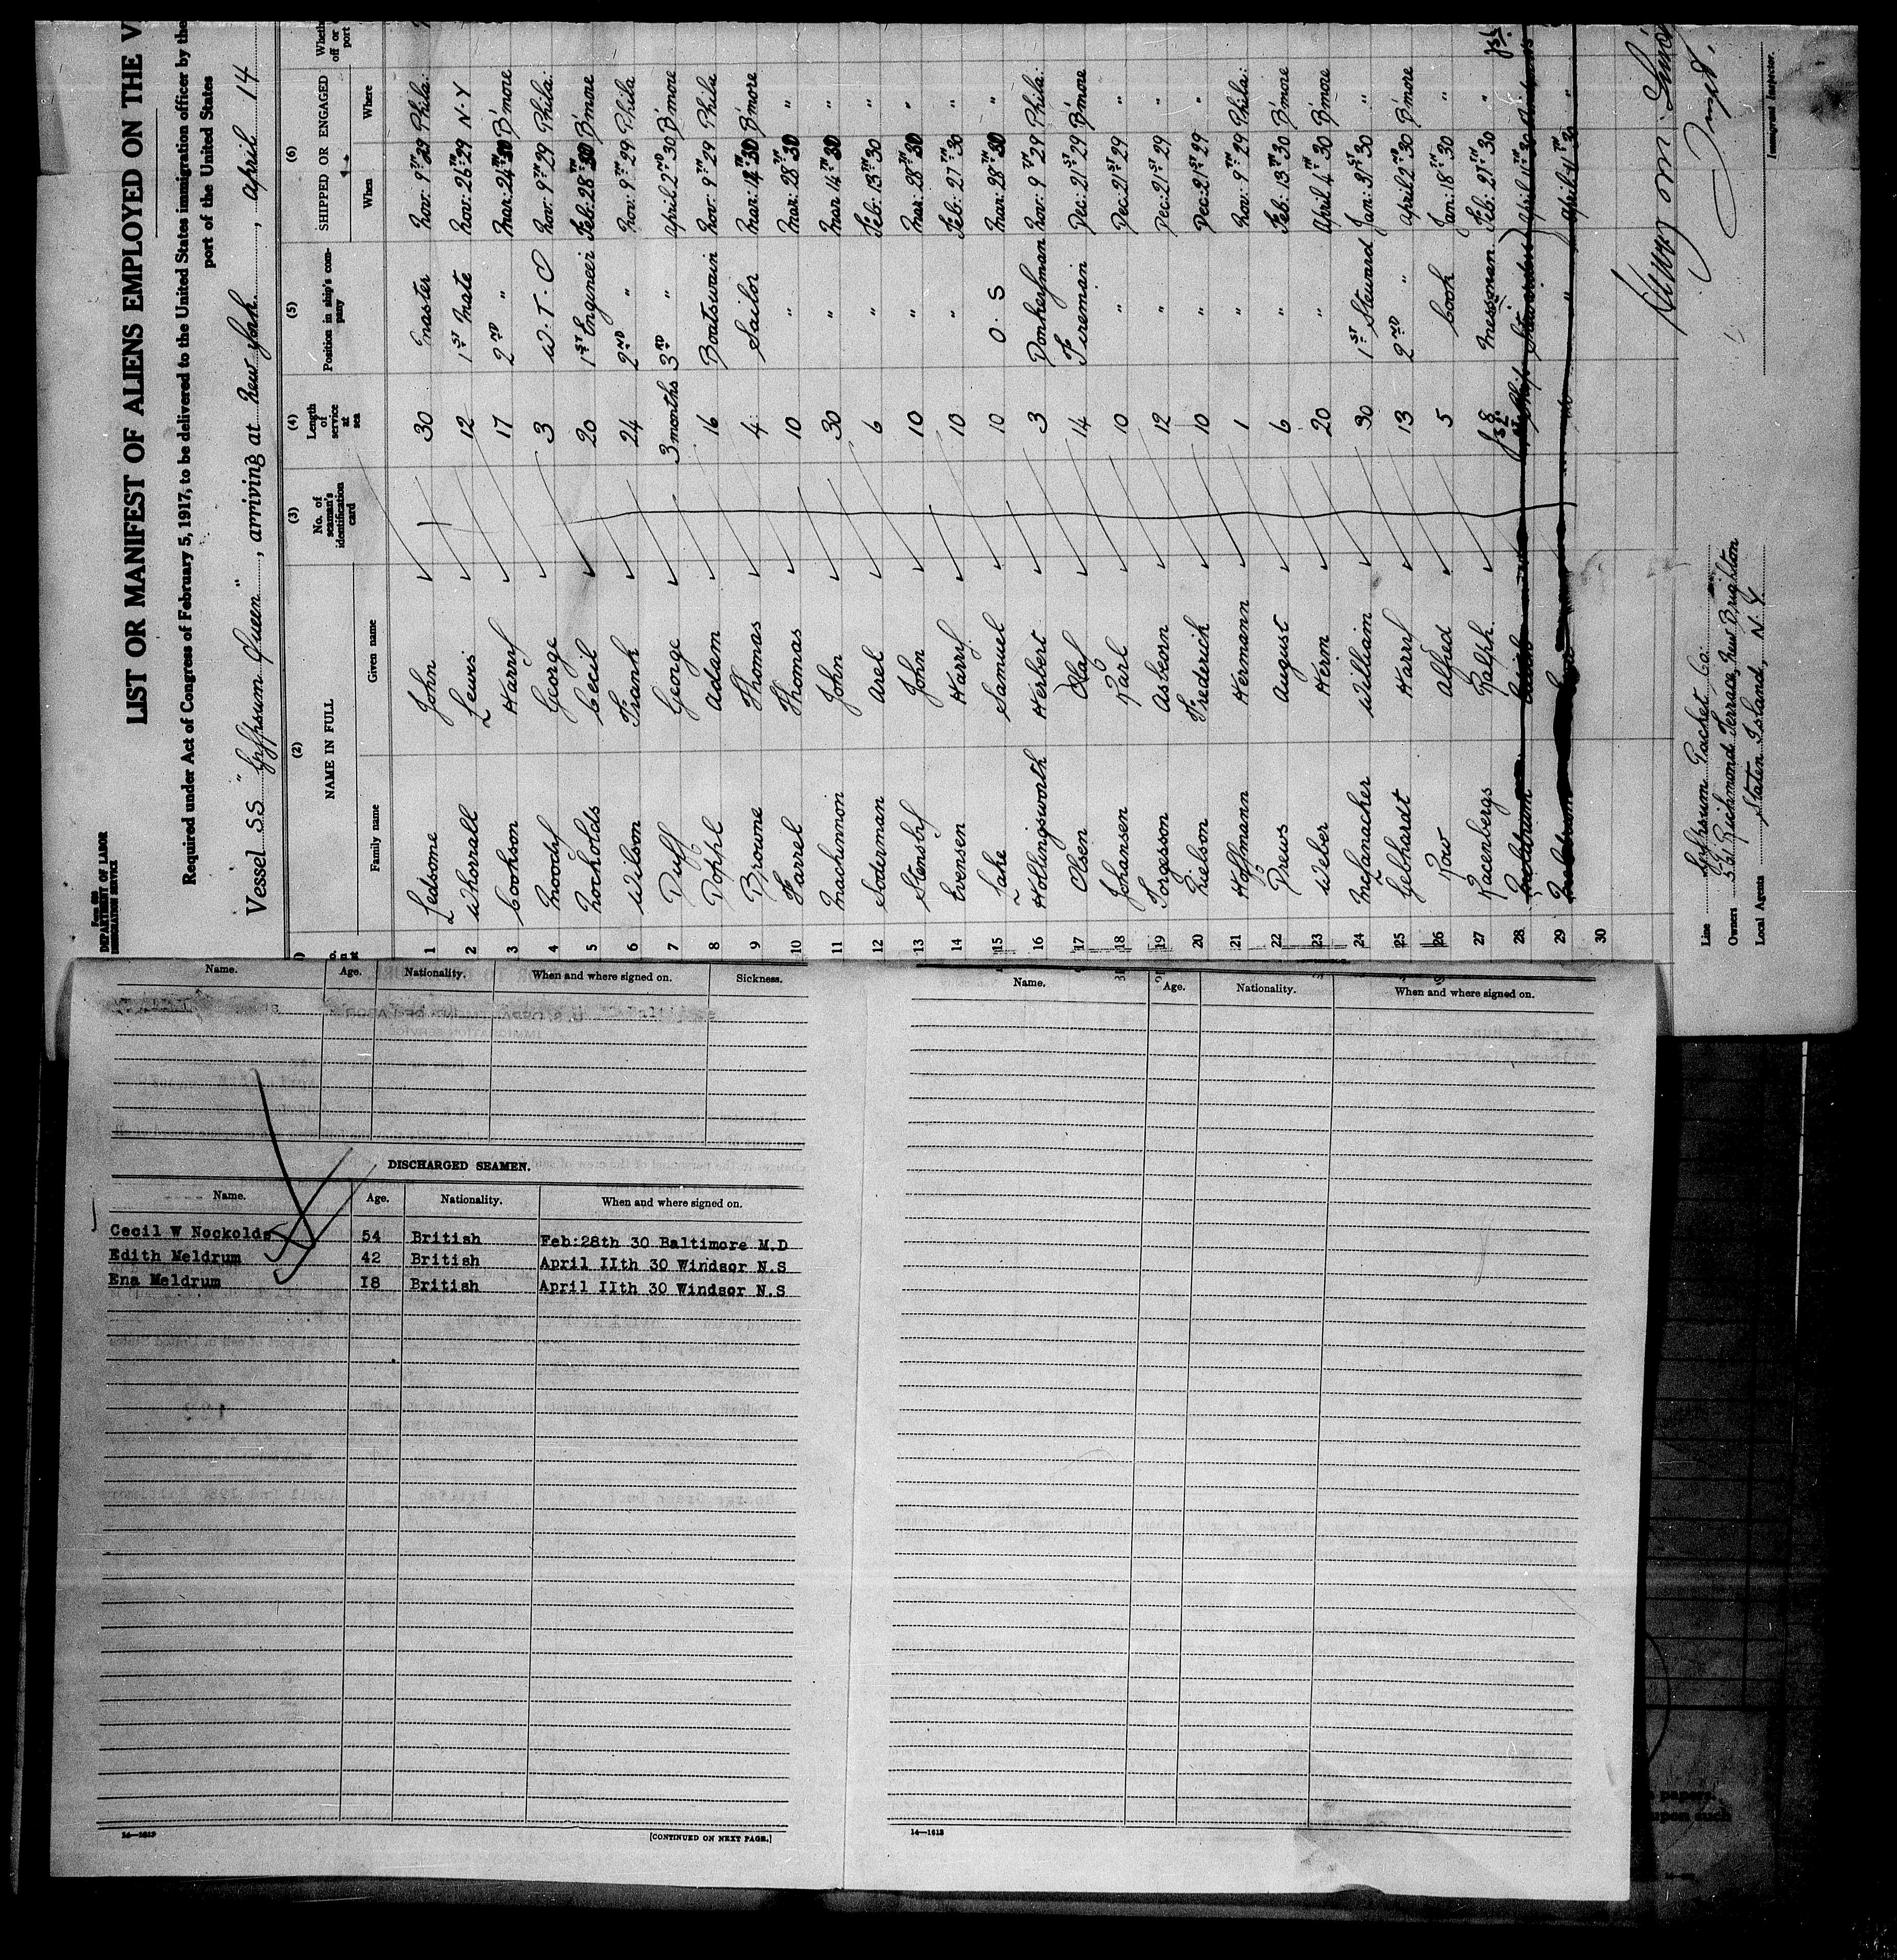 Form 680
DEPARTMENT OF LABOR
IMMIGRATION SERVICE
LIST OR MANIFEST OF ALIENS EMPLOYED ON THE V
Required under Act of Congress of February 5, 1917, to be delivered to the United States immigration officer by the
port of the United States
Vessel S.S. "Gypsum Queen", arriving at New York, April 14
(2) (3) (4) (5) (6)
NAME IN FULL No. of seaman's identification card Length of service at sea Position in ship's company SHIPPED OR ENGAGED Wheth off or port
Family name Given name When Where
1 Ledsome John 30 Master Nov: 9TH 29 Phila:
2 Whorrall Lewis 12 1ST Mate Nov: 26TH 29 N.Y
3 Cookson Harry 17 2ND " Mar: 24TH 30 B'more
4 Moody George 3 W.T.O Nov: 9TH 29 Phila:
5 Nockolds Cecil 20 1ST Engineer Feb: 28TH 30 B'more
6 Wilson Frank 24 2ND " Nov: 9TH 29 Phila
7 Duff George 3 months 3RD " April 2ND 30 B'more
8 Doppl Adam 16 Boatswain Nov: 9TH 29 Phila
9 Browne Thomas 4 Sailor Mar: 14TH 30 B'more
10 Farrel Thomas 10 " Mar: 28TH 30 "
11 MacKinnon John 30 " Mar 14TH 30 "
12 Soderman Axel 6 " Feb: 13TH 30 "
13 Stensby John 10 " Mar: 28TH 30 "
14 Evensen Harry 10 " Feb: 27TH 30 "
15 Lake Samuel 10 O.S Mar: 28TH 30 "
16 Hollingsworth Herbert 3 Donkeyman Nov: 9TH 29 Phila:
17 Olsen Olaf 14 Fireman Dec: 21ST 29 B'more
18 Johansen Karl 10 " Dec: 21ST 29 "
19 Torgesson Asbeorn 12 " Dec: 21ST 29 "
20 Nielson Frederick 10 " Dec: 21ST 29 "
21 Hoffmann Hermann 1 " Nov: 9TH 29 Phila:
22 Drews August 6 " Feb: 13TH 30 B'more
23 Weber Herm 20 " April 4TH 30 B'more
24 McLanacher William 30 1ST Steward Jan: 31ST 30 "
25 Gelhardt Harry 13 2ND " April 2ND 30 B'more
26 Row Alfred 5 Cook Jan: 18TH 30 "
27 Racenbergs Ralph 8 Messman Feb: 27TH 30 "
28 Meldrum Edith Stewardess April 11TH 30 Windsor NS
29 Meldrum Ena " April 11TH 30 "
30
Line Gypsum Packet Co:
Owners Richmond Terrace, New Brighton
Local Agents Staten Island, N.Y.
Insp.
Immigrant Inspector.
Name. Age. Nationality. When and where signed on. Sickness.
DISCHARGED SEAMEN.
Name. Age. Nationality. When and where signed on.
Cecil W Nockolds 54 British Feb:28th 30 Baltimore M.D
Edith Meldrum 42 British April IIth 30 Windsor N.S
Ena Meldrum I8 British April IIth 30 Windsor N.S
14—1613
[CONTINUED ON NEXT PAGE.]
Name. Age. Nationality. When and where signed on.
14—1613
papers.
upon such